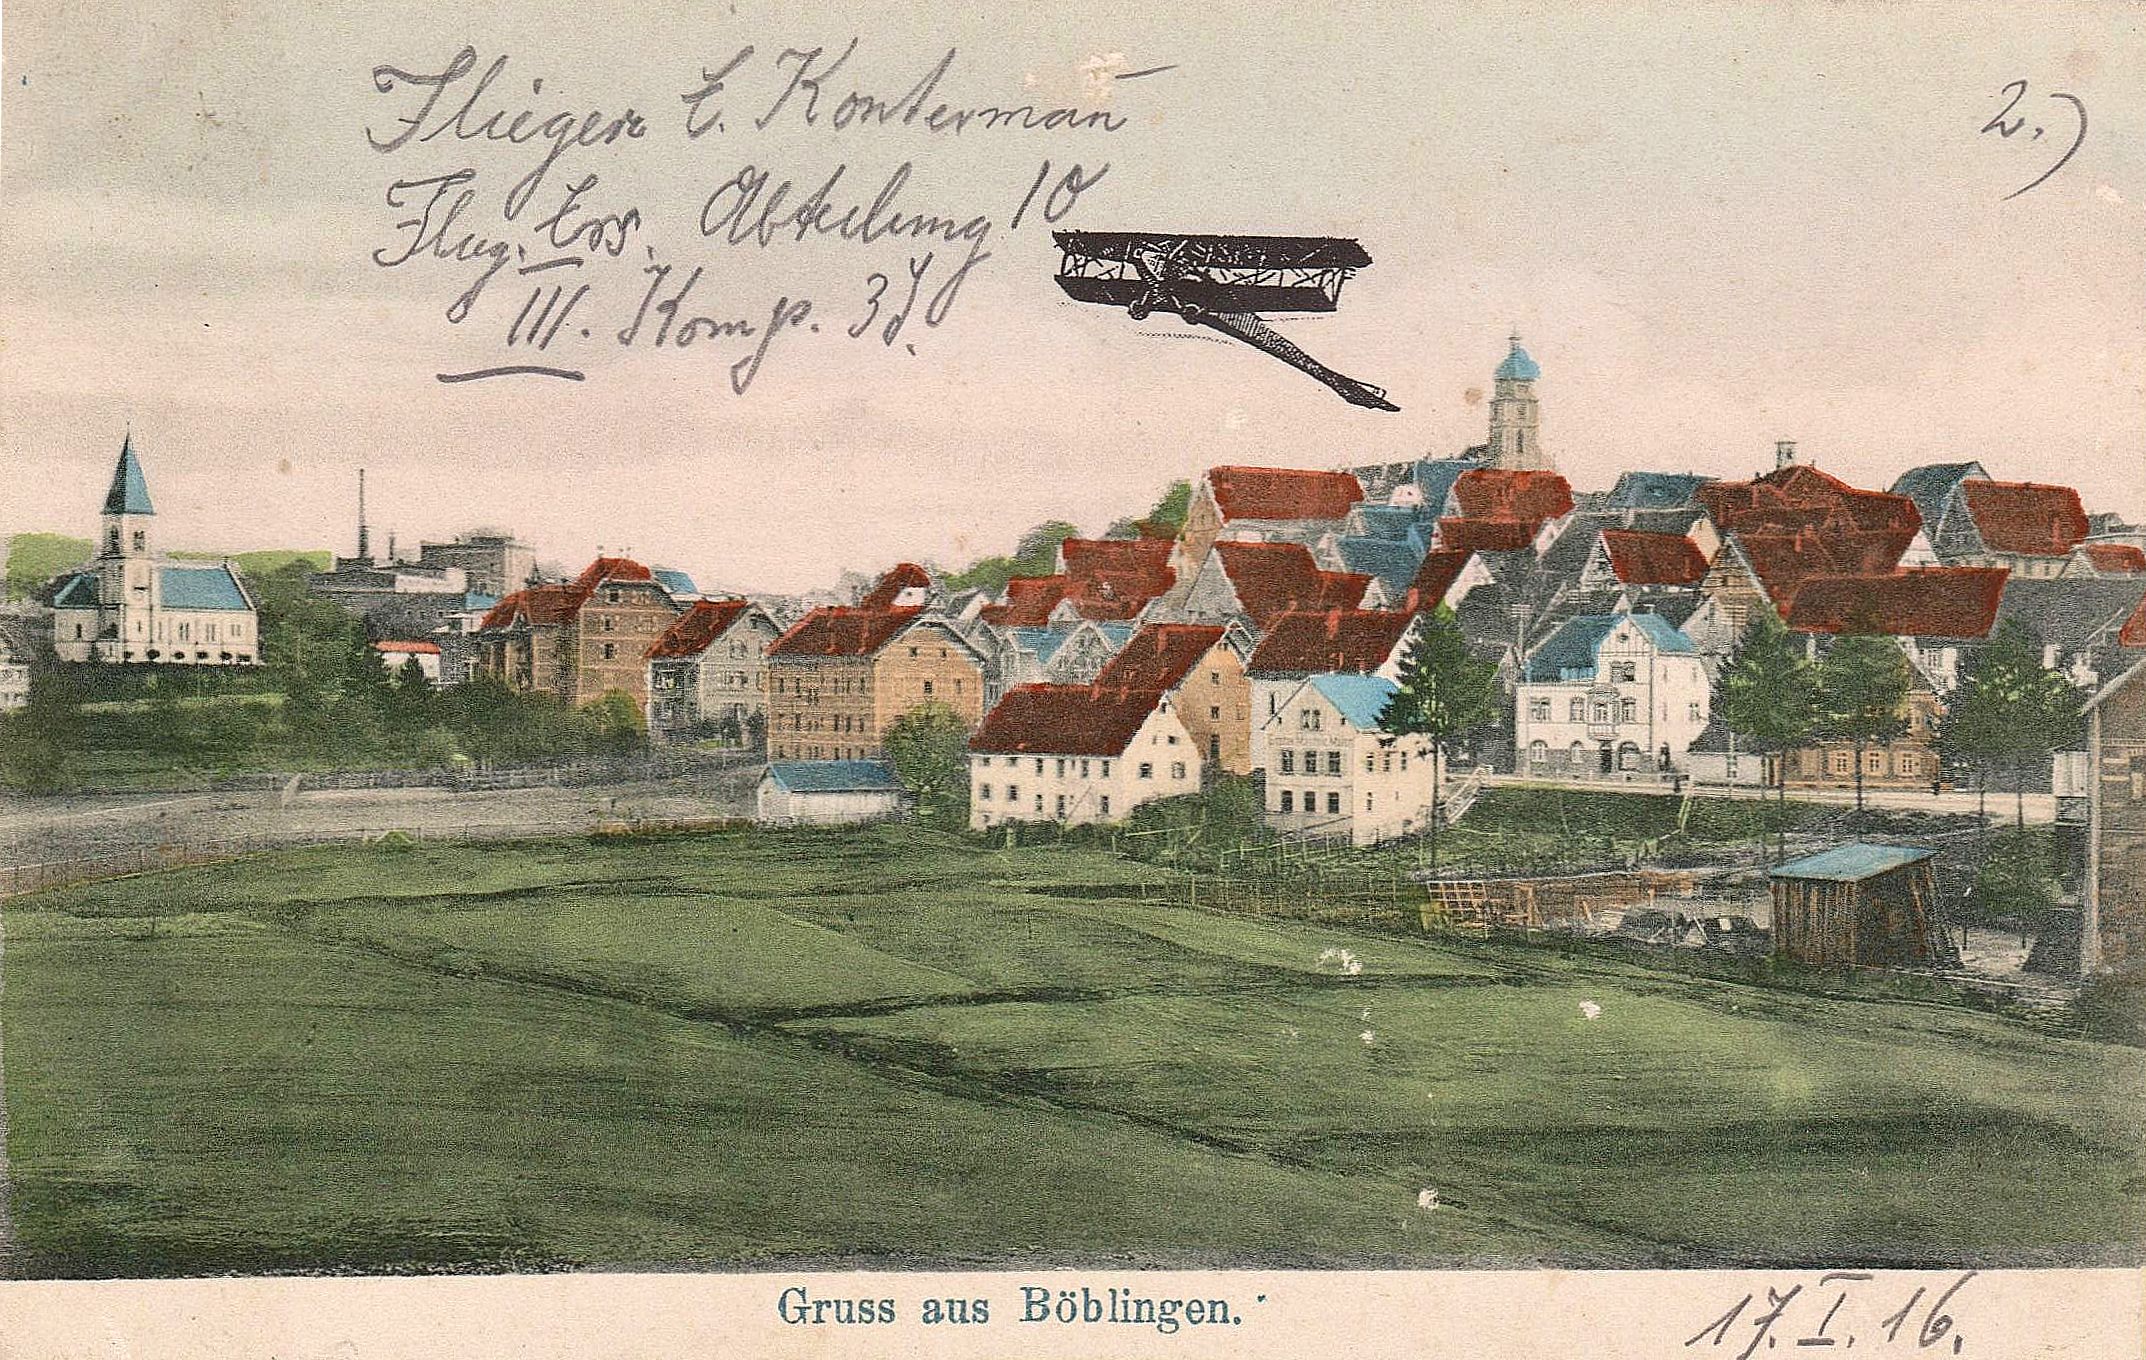 Flieger E. Kontermañ 2.)
Flieg. Ers. Abteilung 10
III. Komp.
Gruss aus Böblingen.
17. I. 16.